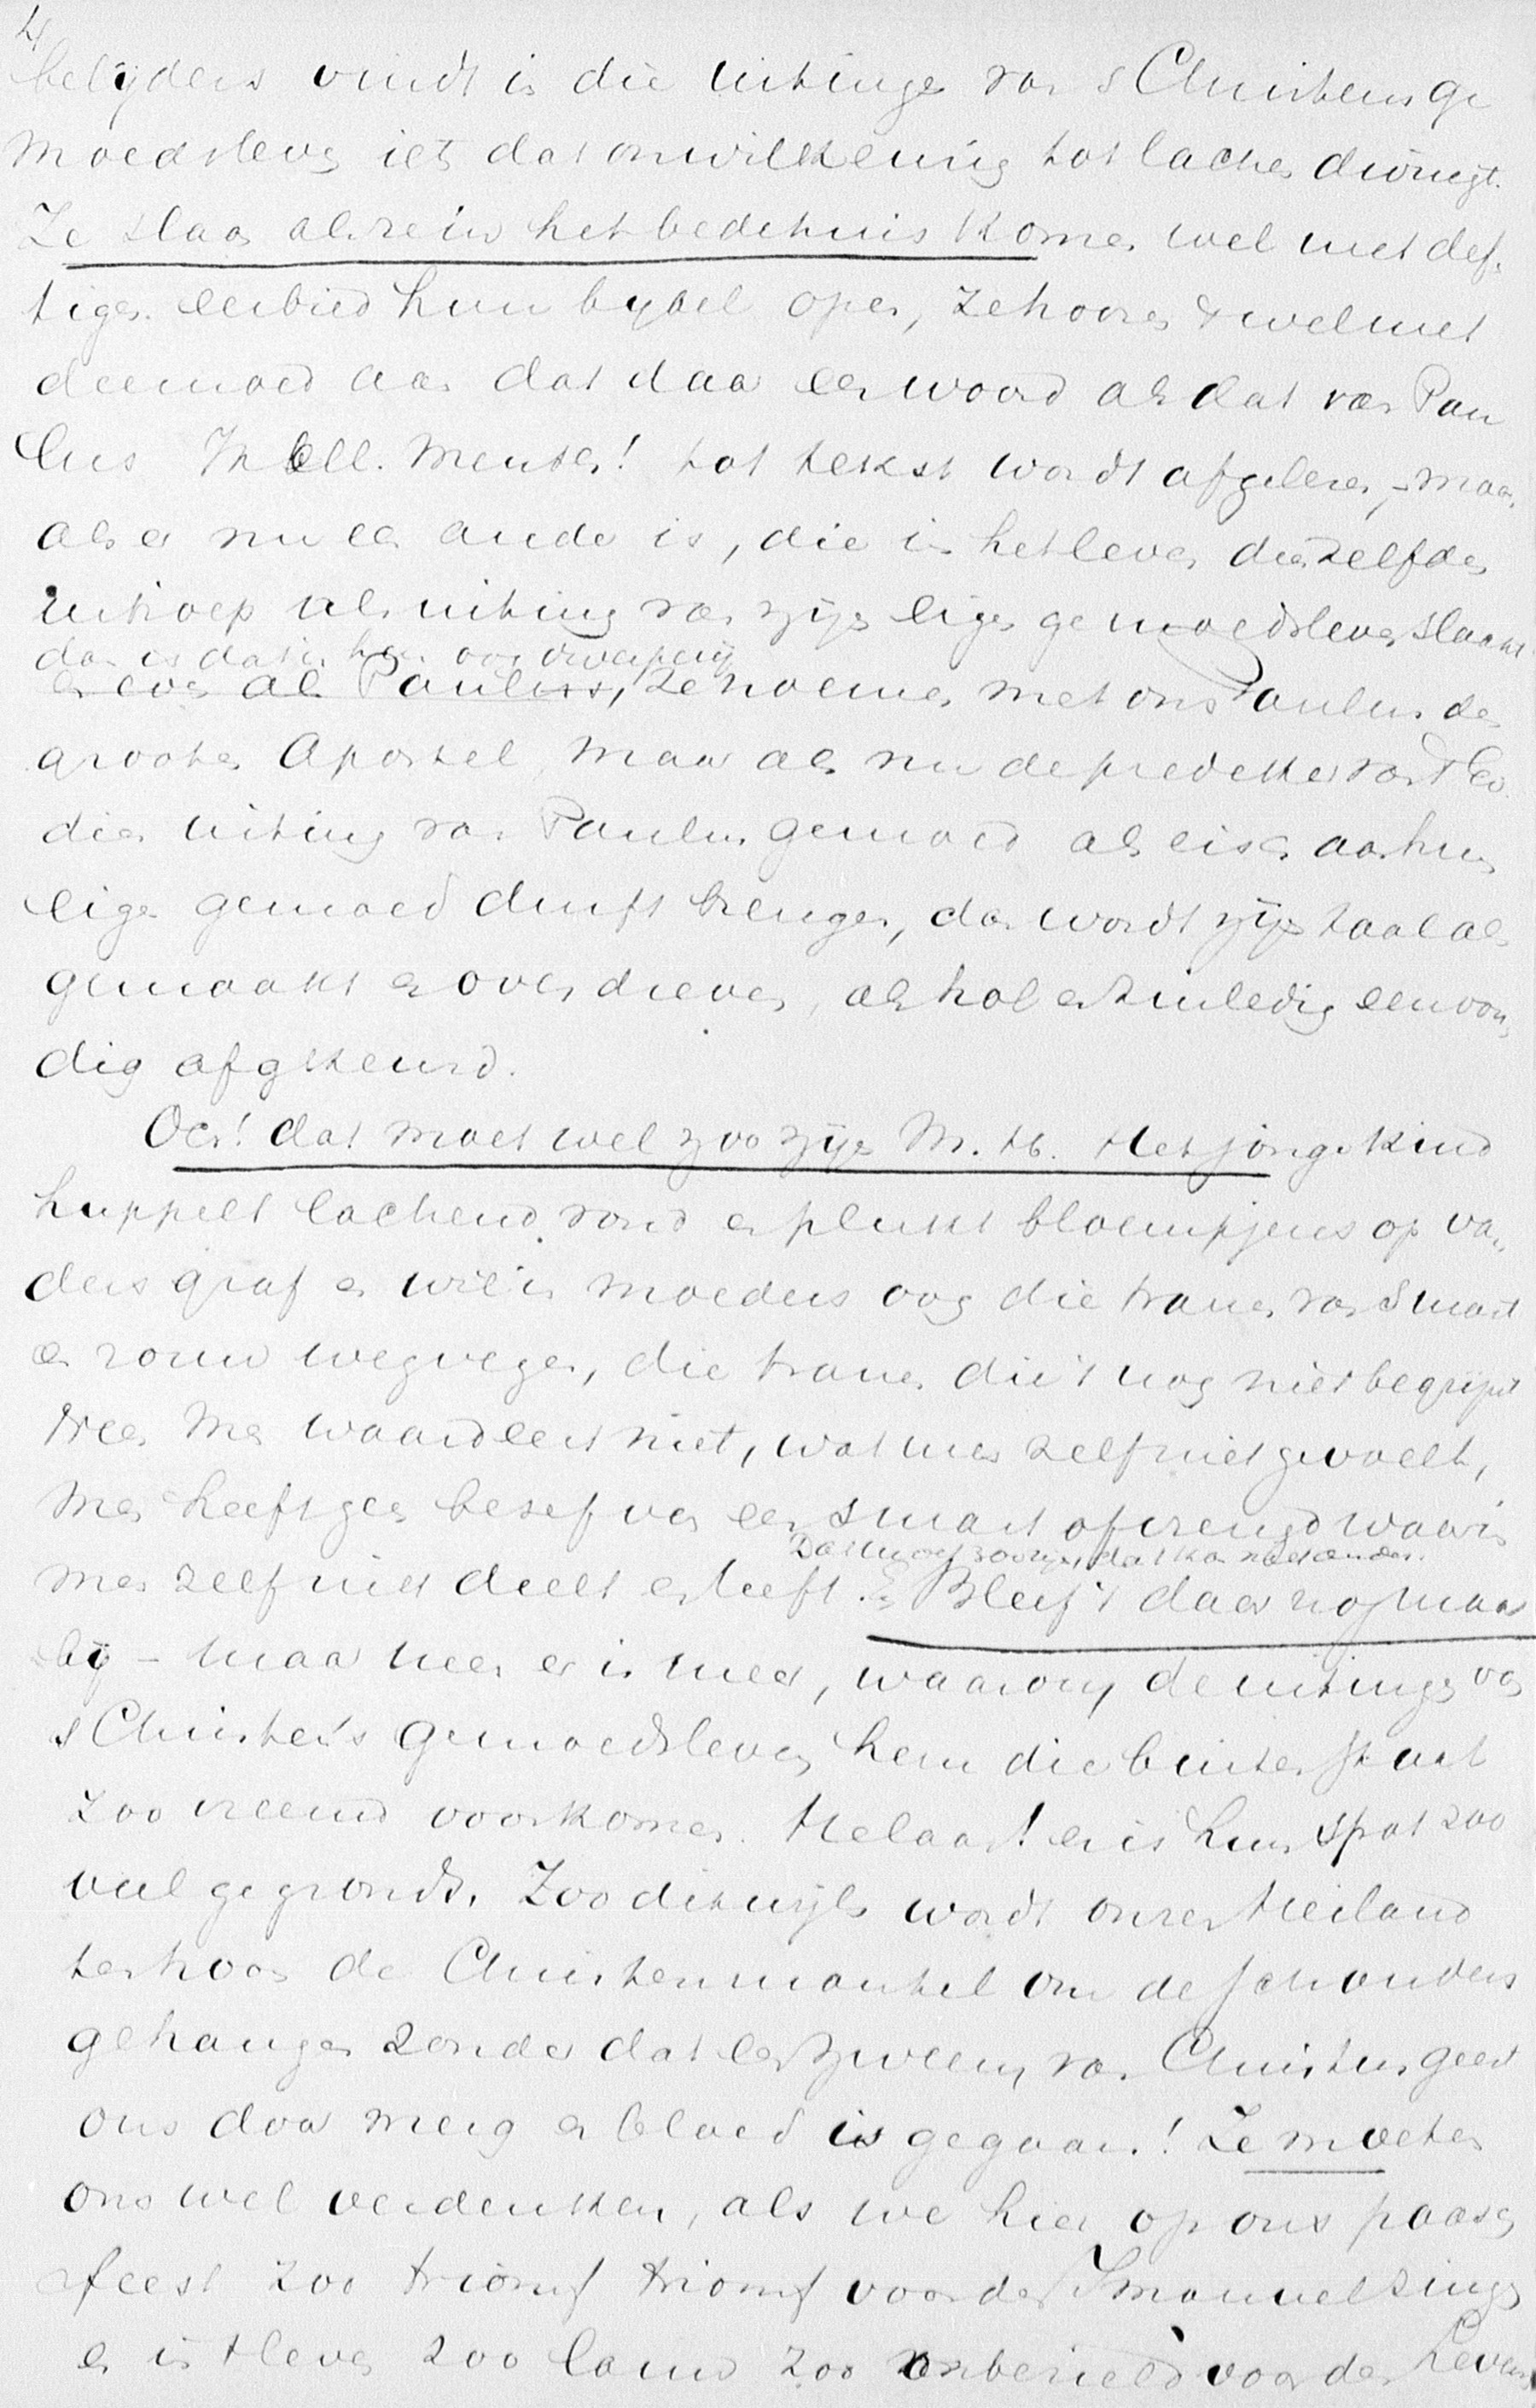 4
belijders vindt in die uitingen van 's Christens ge
moedsleven iets dat onwillekeurig tot lachen dwingt.
Ze slaan als ze in het bedehuis komen wel met def-
tigen eerbied hun bybel open, ze hooren wel met
deemoed aan dat daar een woord als dat van Pau
lus Ik ell. mensch! tot tekst wordt afgelezen, - maar
als er nu een ander is, die in het leven dienzelfden
uitroep als uiting van zijn eigen gemoedsleven slaakt
dan is dat in hun oog dweeperij
en even als Paulus, ze noemen met ons Paulus den
grooten Apostel, maar als nu de prediker van 't Ev.
dien uiting van Paulus gemoed als eisch aan hun
eigen gemoed durft brengen, dan wordt zijn taal als
gemaakt en overdreven, als hol en zinledig eenvou-
dig afgekeurd.
Och! dat moet wel zoo zijn M. H. Het jonge kind
huppelt lachend rond en plukt bloempjens op va-
ders graf en wil in moeders oog die tranen van smart
en rouw wegvegen, die tranen die 't nog niet begrijpt
Neen Men waardeert niet, wat men zelf niet gevoelt,
Men heeft geen besef van een smart of vreugd waarin
Dat moet zoo zijn dat kan niet anders.
men zelf niet deelt en leeft. Bleef 't daar nog maar
bij - maar neen er is meer, waarom de uitingen van
's Christen's gemoedsleven hem die buiten staat
zoo vreemd voorkomen. Helaas! er is hun spot zoo
veel gegronds. Zoo dikwijls wordt onzen Heiland
ten hoon de Christenmantel om de schouders
gehangen zonder dat een zweem van Christus geest
ons door merg en bloed is gegaan! Ze moeten
ons wel verdenken, als we hier op ons paasch
feest zoo triomf triomf voor den Immanuel zingen
en in 't leven zoo lauw zoo onbezield voor den Levens